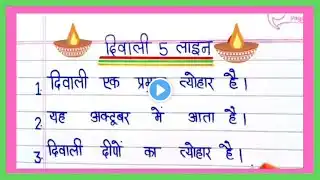 दिवाली 5 लाइन
1. दिवाली एक त्योहार है।
2. यह अक्टूबर में आता है।
3. दिवाली दीपों का त्योहार है।